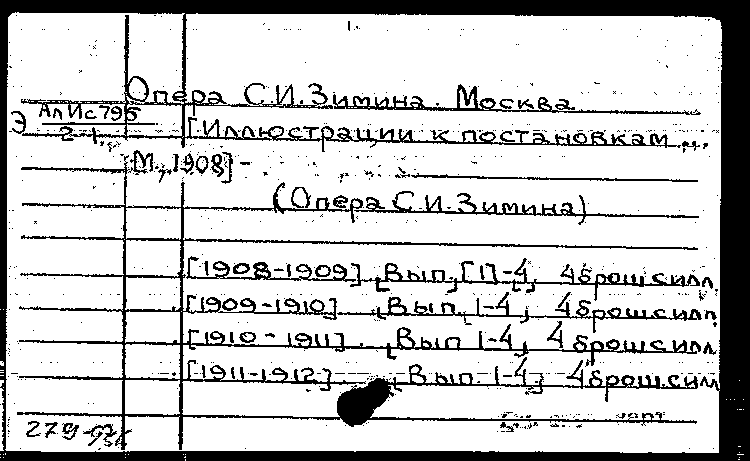 Опера С.И.Зимина. Москва
Э АлИс795
2-1,
[Иллюстрации к постановкам...
[М., 1908] -
(Опера С.И.Зимина)
[1908-1909] [Вып. [1]-4], 4 брош.с илл.
[1909-1910] [Вып. 1-4], 4 брош.с илл.
[1910-1911]. [Вып 1-4], 4 брош.с илл
[1911-1912] [Вып. 1-4], 4 брош.с илл
279-93к